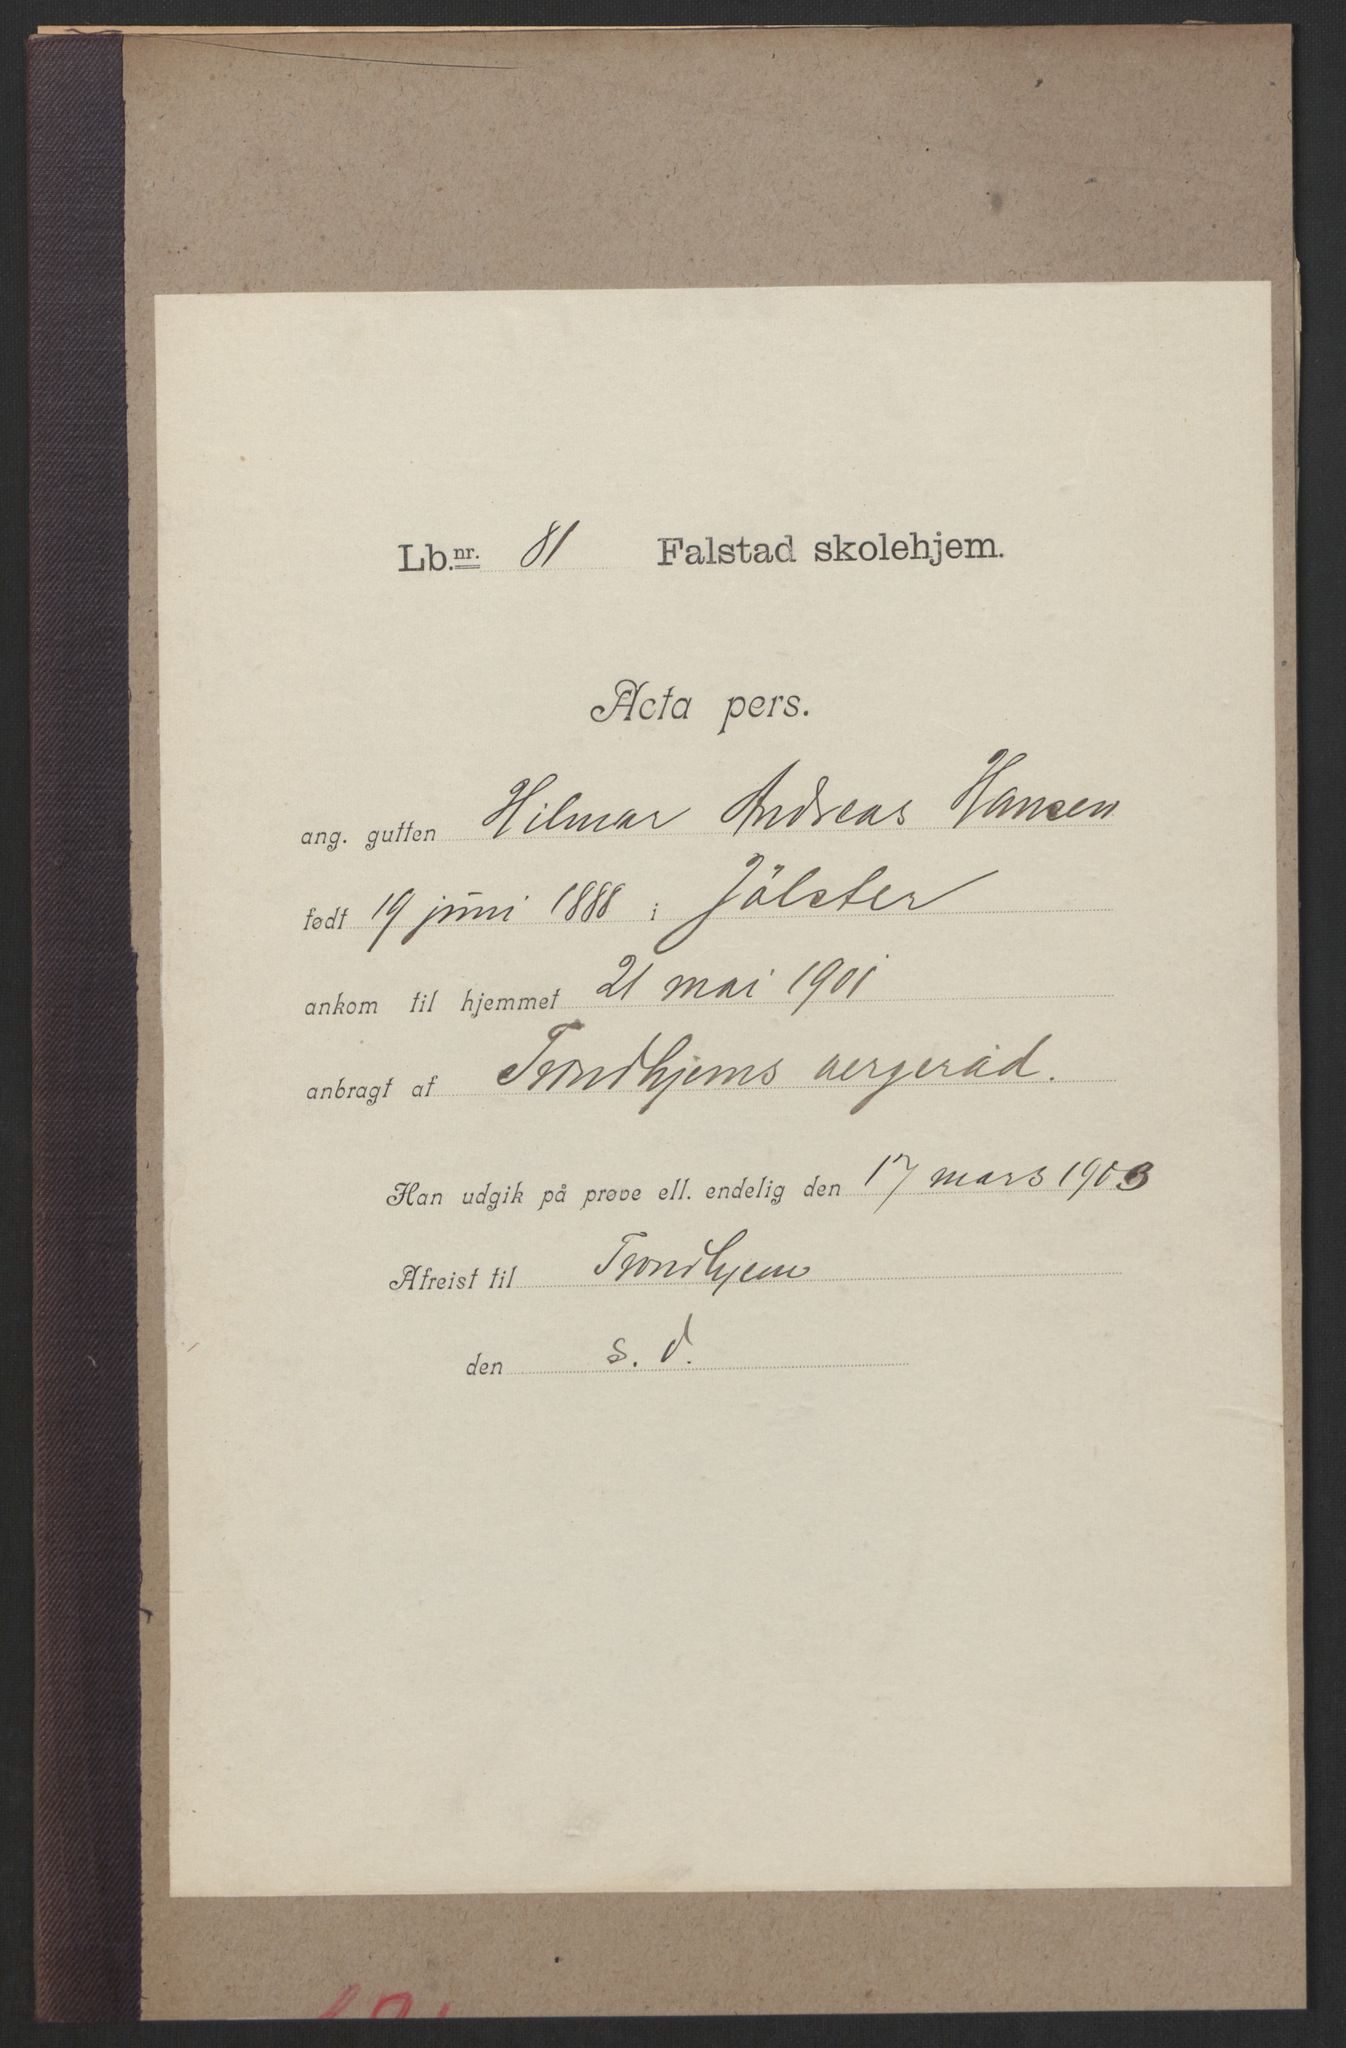 Lb.nr. 81 Falstad skolehjem.
Acta pers.
ang. gutten Hilmar Andreas Hansen
født 19 juni 1888 i Jölster
ankom til hjemmet 21 mai 1901
anbragt af Trondhjems vergeråd.
Han udgik på prøve ell. endelig den 17 mars 1903
Afreist til Trondhjem
den s. d.